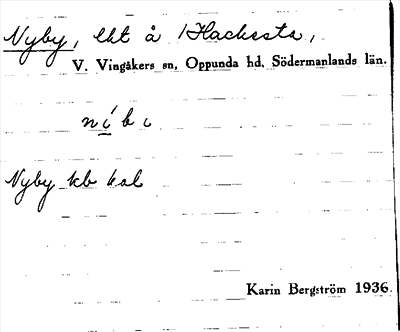 Nyby, lht å 1 Hacksta,
V. Vingåkers sn, Oppunda hd, Södermanlands län.
ní b ι
Nyby kb
Karin Bergström 1936.